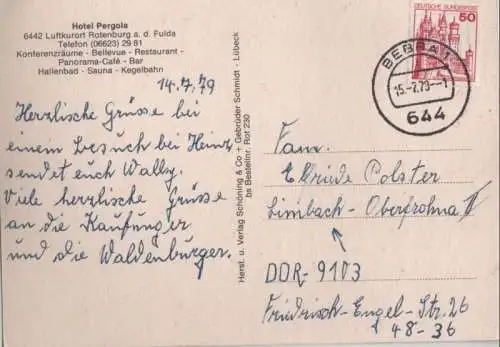 Hotel Pergola
6442 Luftkurort Rotenburg a. d. Fulda
Telefon (06623) 29 81
Konferenzräume - Bellevue - Restaurant -
Panorama-Café - Bar
Hallenbad - Sauna - Kegelbahn
14.7.79
Herzlische Grüsse bei
einem Besuch bei Heinz,
sendet euch Wally.
Viele herzlische Grüsse
an die Kaufunger
und die Waldenburger.
Herst. u. Verlag Schöning & Co + Gebrüder Schmidt - Lübeck
bs Bestellnr. Rot 230
DEUTSCHE BUNDESPOST
50
BEBRA 1
15.-7.79--
644
Fam.
Elfriede Polster
Limbach - Oberfrohna II
DDR-9103
Friedrisch-Engel-Str. 26
48-36